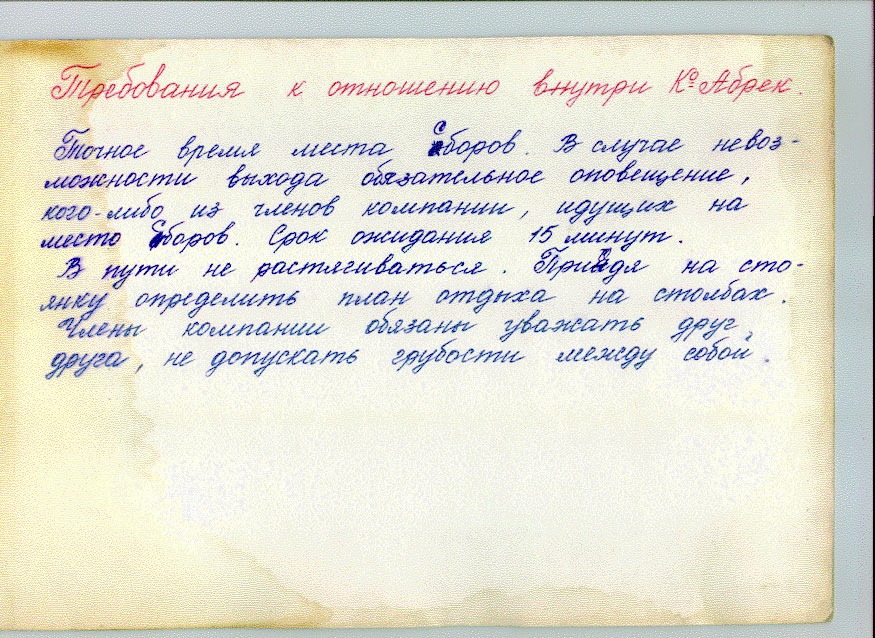 Требования к отношению внутри Ко Абрек.
Точное время места Сборов. В случае невоз-
можности выхода обязательное оповещение,
кого-либо из членов компании, идущих на
место Сборов. Срок ожидания 15 минут.
В пути не растягиваться. Прийдя на сто-
янку определить план отдыха на столбах.
Члены компании обязаны уважать друг
друга, не допускать грубости между собой.